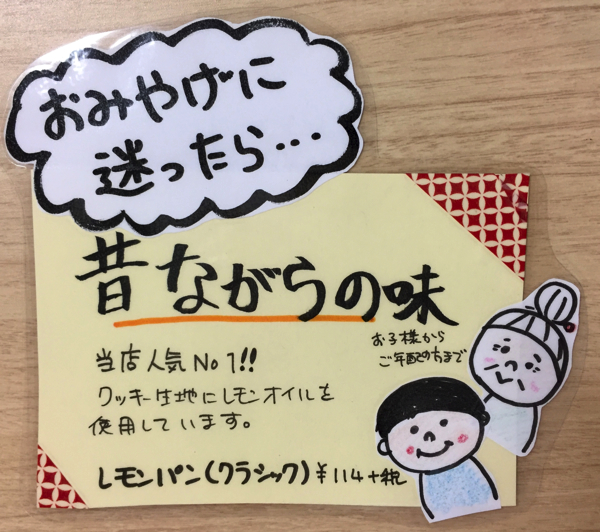 おみやげに
迷ったら...
昔ながらの味
お子様から
ご年配の方まで
当店人気No1!!
クッキー生地にレモンオイルを
使用しています。
レモンパン(クラシック)¥114+税